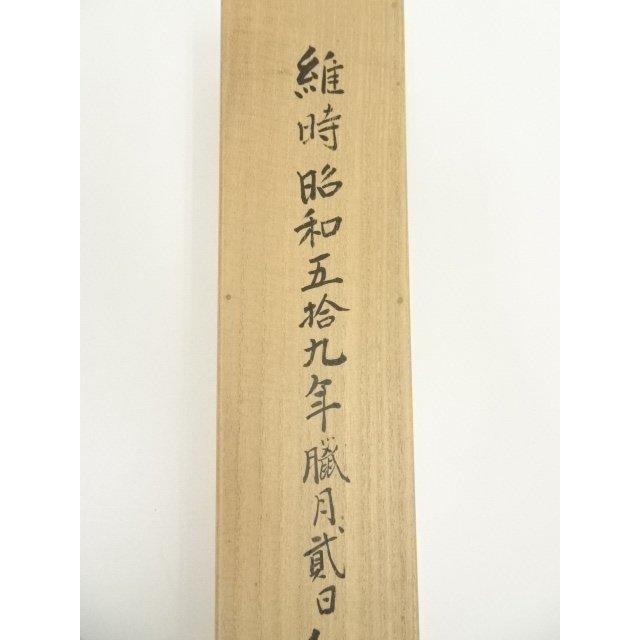 維時昭和五拾九年臘月貳日